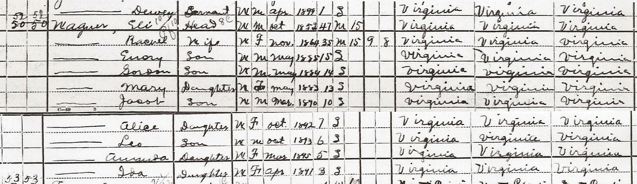 —— Dewey Servant W M apr 1899 1 S Virginia Virginia Virginia
50 50 Wagner, Eli Head W M oct 1852 47 M 15 Virginia Virginia Virginia
—— Rachel Wife W F nov 1864 35 M 15 9 8 Virginia Virginia Virginia
—— Emory Son W M may 1885 15 S Virginia Virginia Virginia
—— Gordon Son W M may 14 S Virginia Virginia Virginia
—— Mary Daughter W F may 13 S Virginia Virginia Virginia
—— Jacob Son W M Mar 1890 10 S Virginia Virginia Virginia
—— Alice Daughter W F oct 1892 7 S Virginia Virginia Virginia
—— Leo Son W M oct 1893 6 S Virginia Virginia Virginia
—— Amanda Daughter W F mar 1895 5 S Virginia Virginia Virginia
53 53 —— Iva Daughter W F apr 1897 3 S Virginia Virginia Virginia